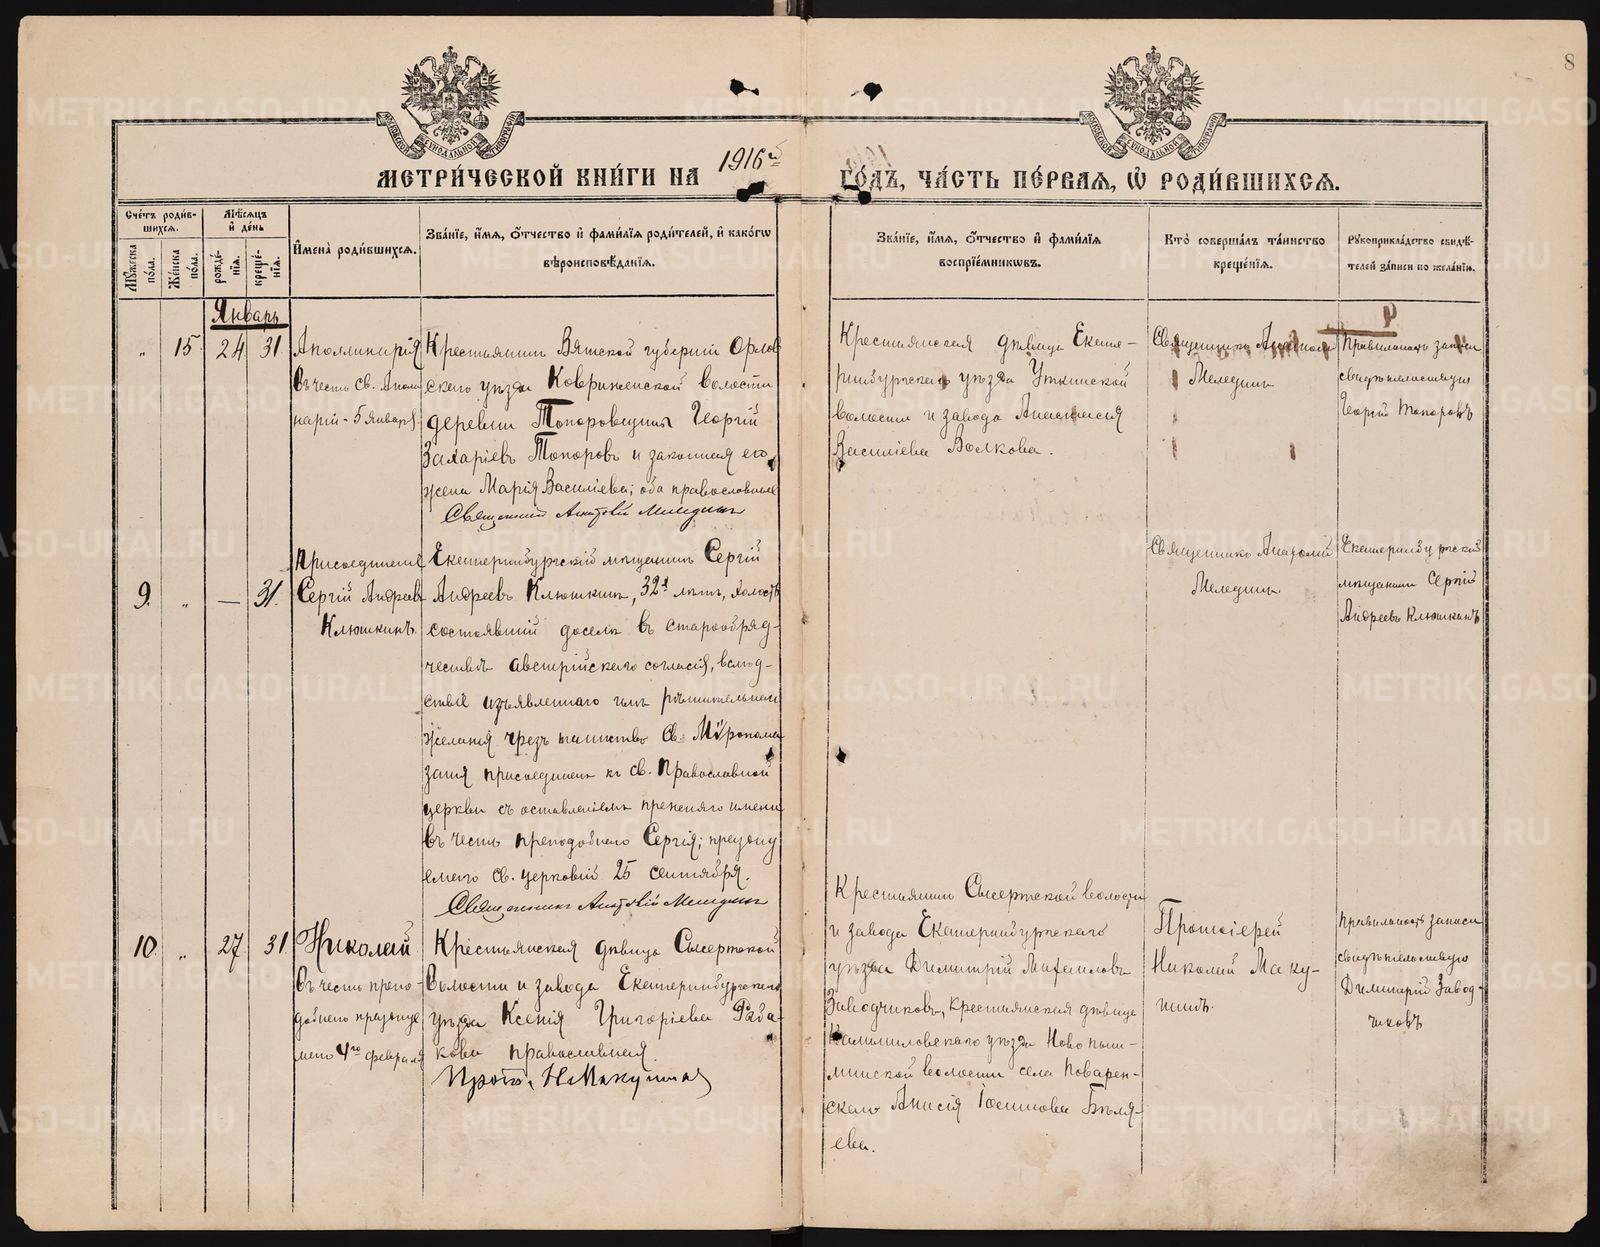 8
МЕТРИ́ЧЕСКОЙ КНИ́ГИ НА 1916 й
ГО́ДЪ, ЧА́СТЬ ПЕ́РВАЯ, Ѡ҆ РОДИ́ВШИХСЯ.
Сче́тъ роди́в-
шихся.
Мѣ́сяцъ
и҆ де́нь
Мꙋ́жеска по́ла.
Же́нска по́ла.
рожде́-
нїя.
креще́-
нїя.
И҆мена̀ роди́вшихся.
Зва́нїе, и҆́мя, ѻ҆́тчество и҆ фами́лїя роди́телей, и҆ како́гѡ
вѣроисповѣ́данїя.
Зва́нїе, и҆́мя, ѻ҆́тчество и҆ фами́лїя
воспрїе́мникѡвъ.
Кто̀ соверша́лъ та́инство
креще́нїя.
Рꙋкоприкла́дство свидѣ́-
телей за́писи по жела́нїю.
Январь
„ 15. 24 31
Аполлинарія
въ честь св. Апол
нарій - 5 января.
Крестьянинъ Вятской губерніи Орлов
скаго уѣзда Ковриженской волости
деревни Топоровщины Георгій
Захаріевъ Топоровъ и законная его
жена Марія Васильева; оба православные
Священникъ Анатолій Мелединъ
Крестьянская дѣвица Екате-
ринбургскаго уѣзда Уткинской
волости и завода Анастасія
Василіева Волкова.
Священникъ Анатолій
Мелединъ
Правильность записи
свидѣтельствую
Георгій Топоровъ
9. „ — 31.
Присоединение
Сергій Андреев
Клюшкинъ.
Екатеринбургскій мѣщанинъ Сергій
Андреевъ Клюшкинъ, 32х лѣтъ, холостъ
состоявшій доселѣ въ старообряд-
чествѣ австрійскаго согласія, вслѣд-
ствіе изъявленнаго имъ рѣшительнаго
желанія чрезъ таинство Св. Мѵропома
занія присоединенъ къ св. Православной
церкви съ оставленіемъ прежняго имени
въ честь преподобнаго Сергія; празднуе
емаго св. церковій 25 сентября.
Священникъ Анатолій Мелединъ
Священникъ Анатолій
Мелединъ
Екатеринбургский
мѣщанин Сергій
Андреевъ Клюшкинъ
10. „ 27 31
Николай
въ честь препо-
добнаго праздну
маго 4го февраля
Крестьянская дѣвица Сысертской
волости и завода Екатеринбургскаго
уѣзда Ксенія Григоріева Рыба-
кова православная.
Прот. Н. Макушинъ
Крестьянинъ Сысертской волости
и завода Екатеринбургскаго
уѣзда Димитрій Михаиловъ
Заводчиковъ, крестьянская дѣвица
Камышловскаго уѣзда Новопыш-
минской волости села Поварен-
скаго Анисія Іоаннова Бѣля-
ева.
Протоіерей
Николай Маку-
шинъ.
Правильность записи
свидѣтельствую
Димитрій Завод-
чиковъ